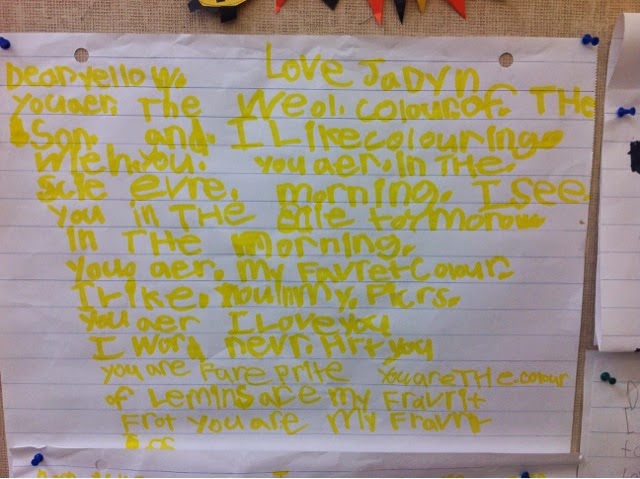 Dear yellow. Love Jadyn
you aer. The Weol. colour. of. THe
Son. and. I Like colouring.
Wieh. you. you aer. in THe.
Scie evre. morning. I see
you in THe Scie tormorow
In THe morning.
you aer. my Favret colour
I like. you in my. Picrs.
you aer I Love you
I word nevr. Hrt you
you are Fare prite you are THe. colour
of Lemins are my Fravrit
Frot you are my Fravrit